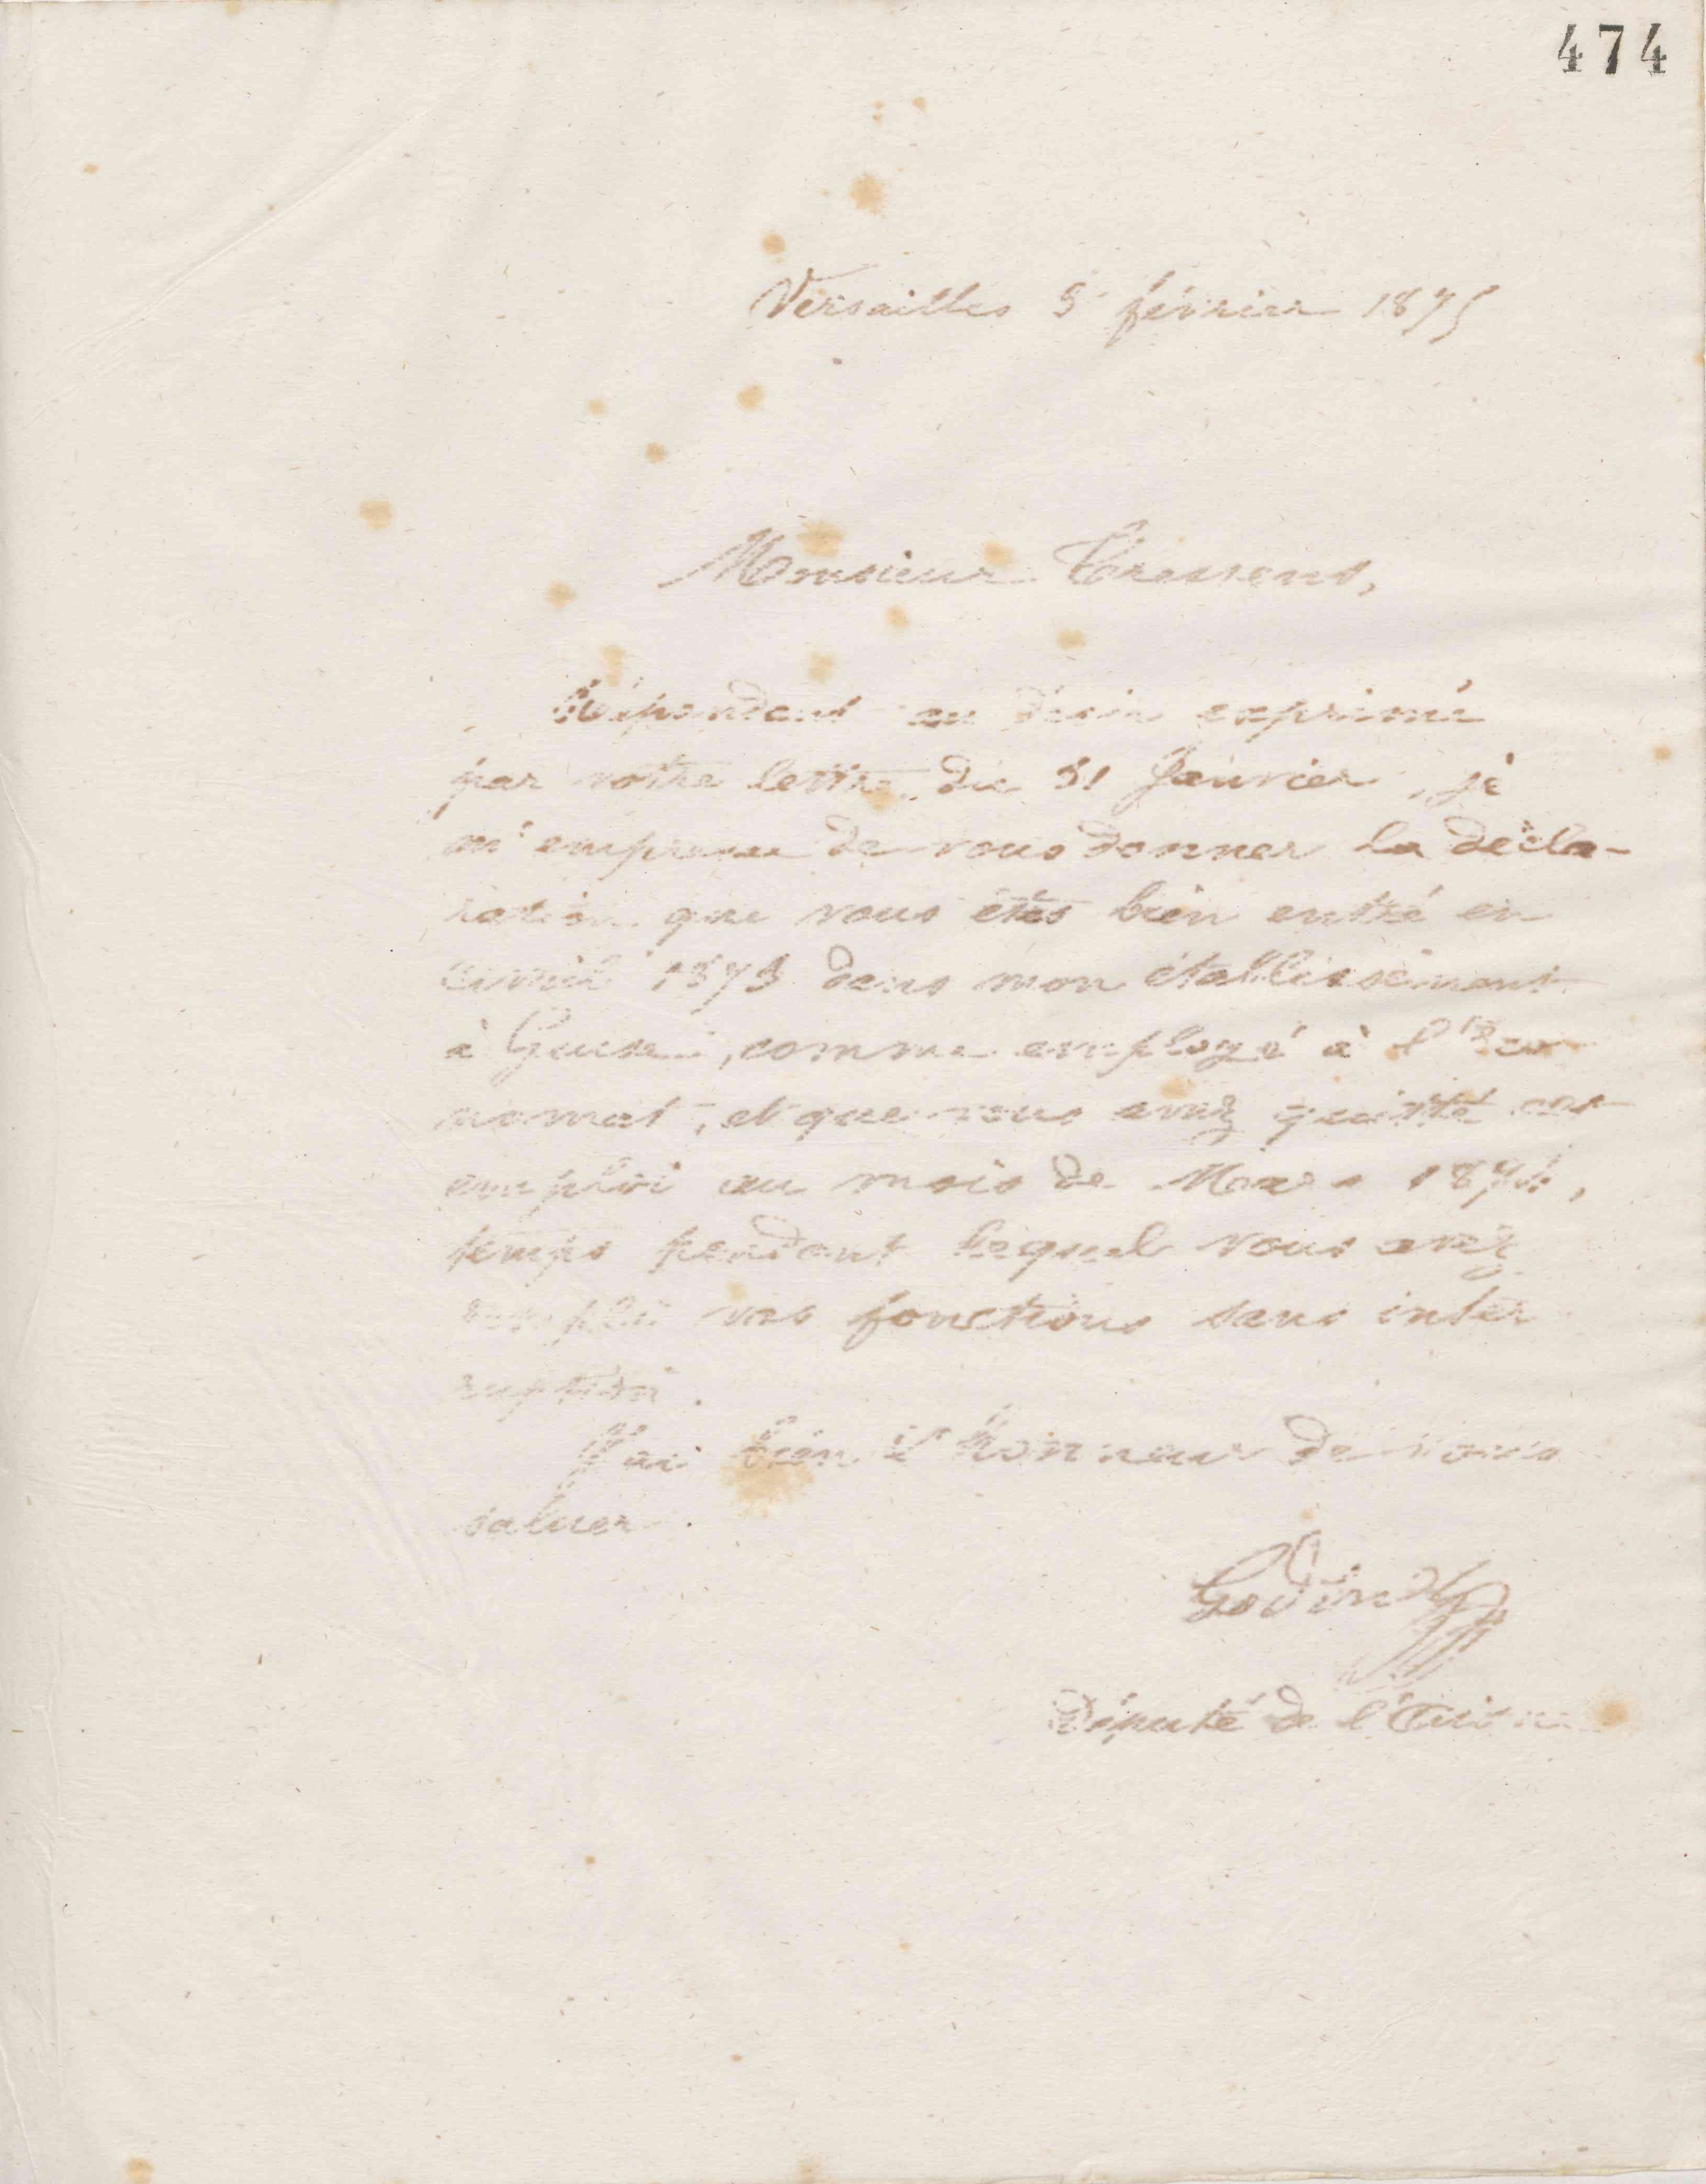 474
Versailles 5 février 1875
Monsieur
Répondant au désir exprimé
par votre lettre du 31 Janvier, je
m'empresse de vous donner la décla-
ration que vous êtes bien entré en
avril 1873 dans mon établissement
à Guise, comme employé à l'Eco
nomat, et que vous avez quitté cet
emploi au mois de Mars 1874,
temps pendant lequel vous avez
rempli vos fonctions sans inter
ruption.
J'ai bien l'honneur de vous
saluer.
Godin
Député de l'Aisne